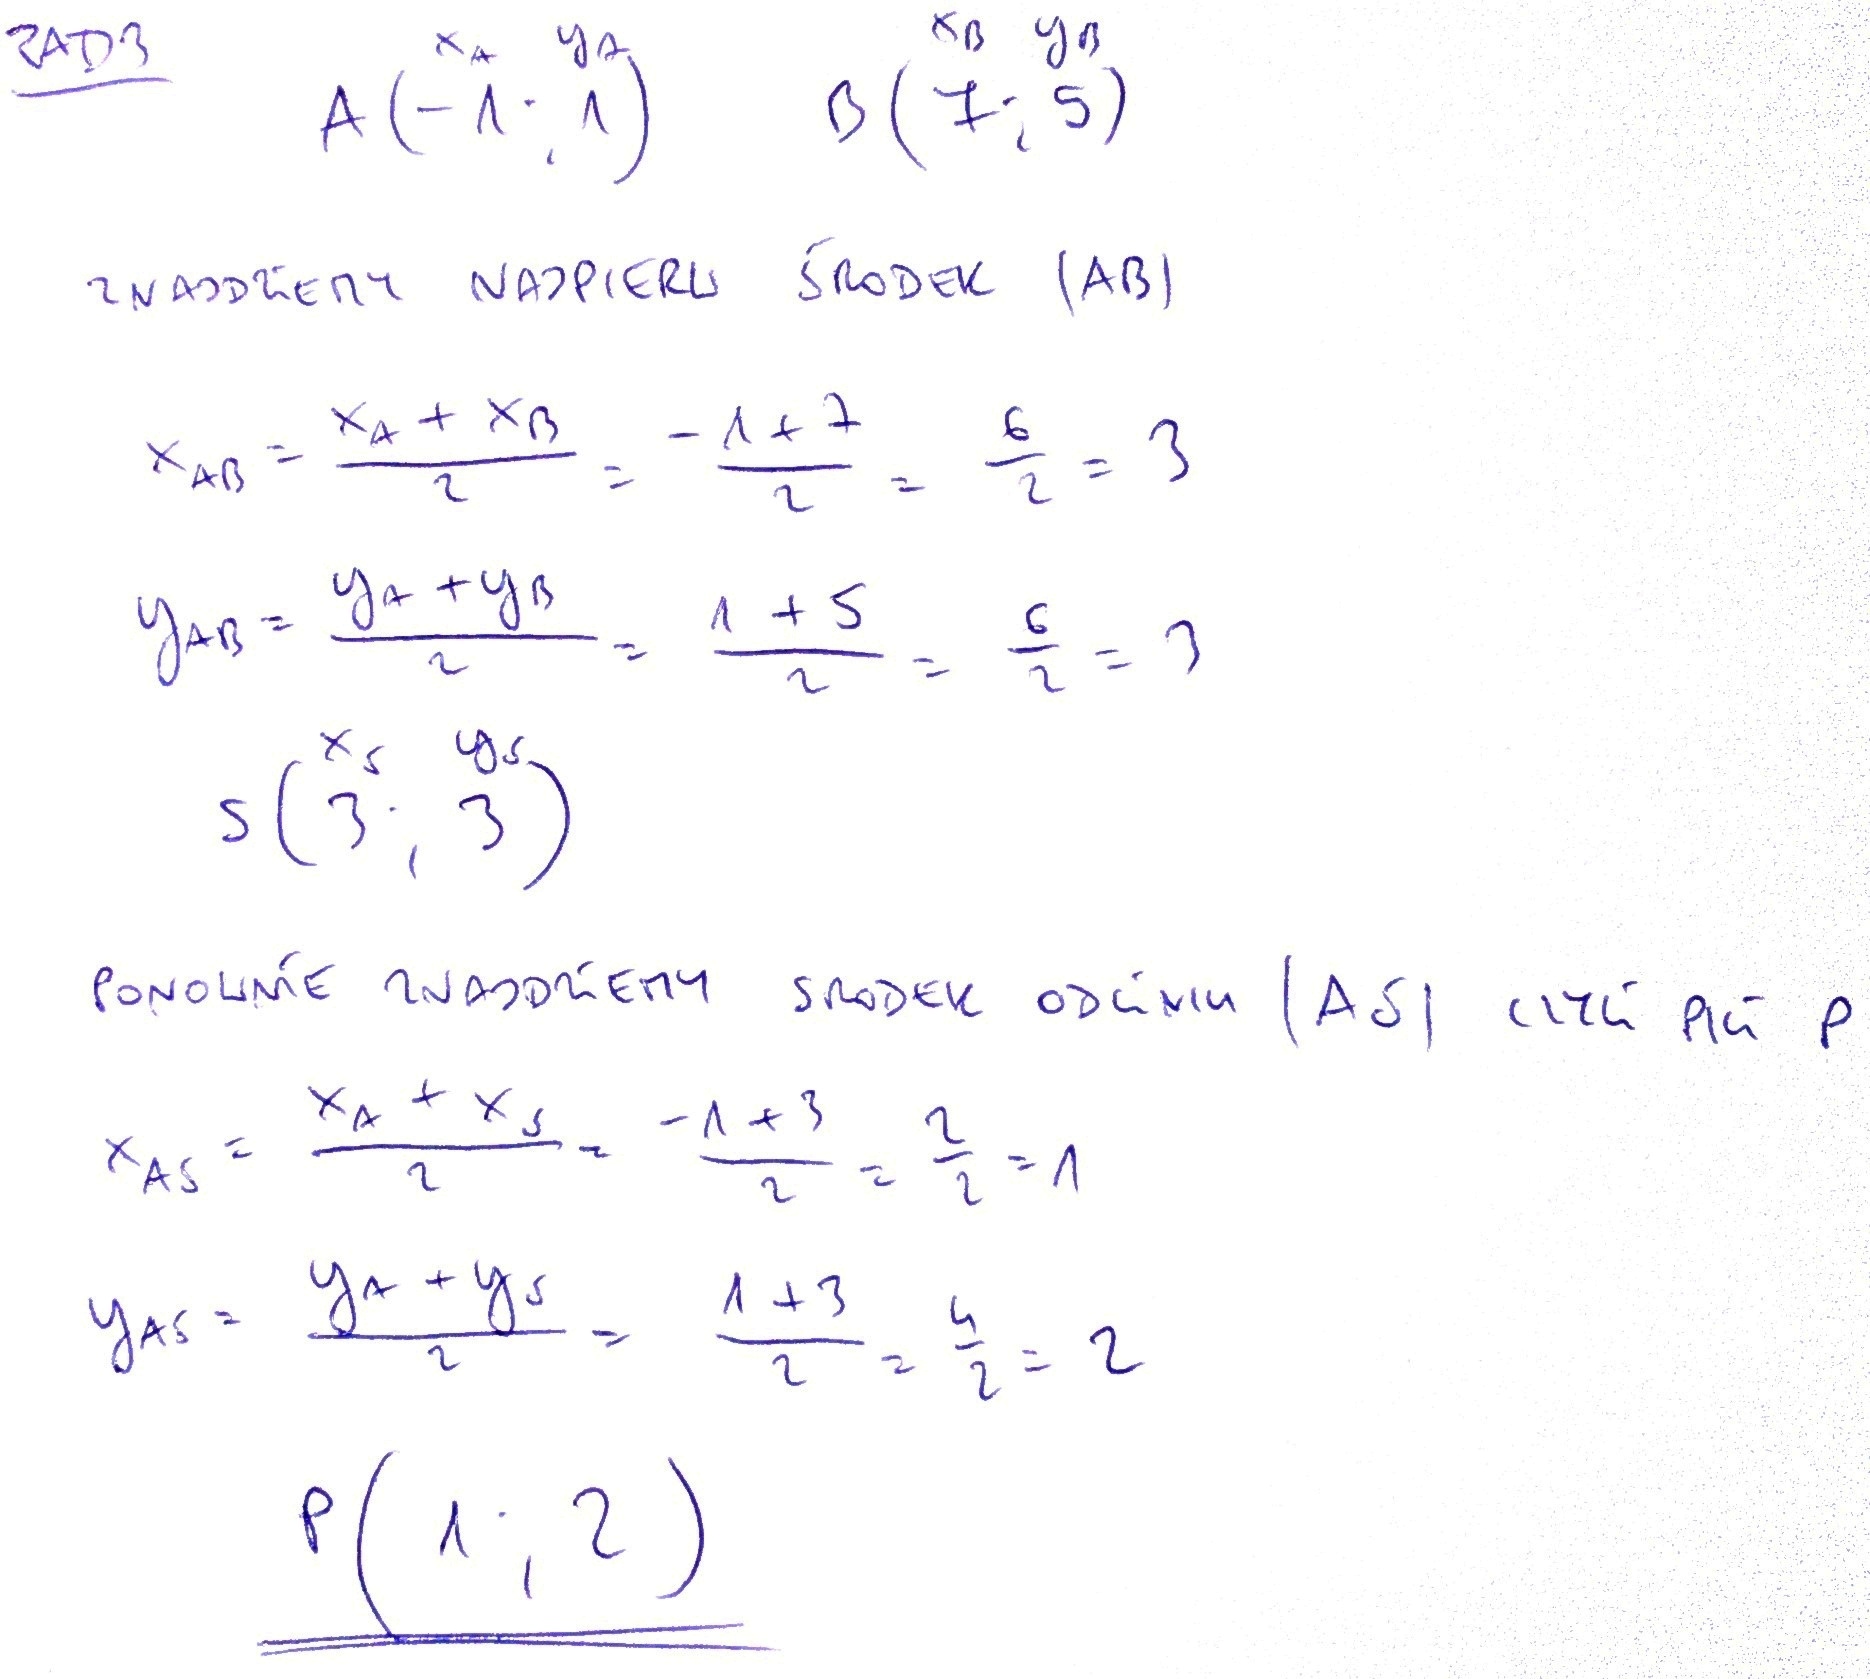 ZAD3
x_A y_A x_B y_B
A(-1; 1) B(7; 5)
ZNAJDŹIEMY NAJPIERW ŚRODEK |AB|
x_AB = (x_A + x_B)/2 = (-1+7)/2 = 6/2 = 3
y_AB = (y_A + y_B)/2 = (1+5)/2 = 6/2 = 3
x_S y_S
S(3; 3)
PONOWNIE ZNAJDŹIEMY SRODEK ODCINKU |AS| CZYLI P
x_AS = (x_A + x_S)/2 = (-1+3)/2 = 2/2 = 1
y_AS = (y_A + y_S)/2 = (1+3)/2 = 4/2 = 2
P(1; 2)